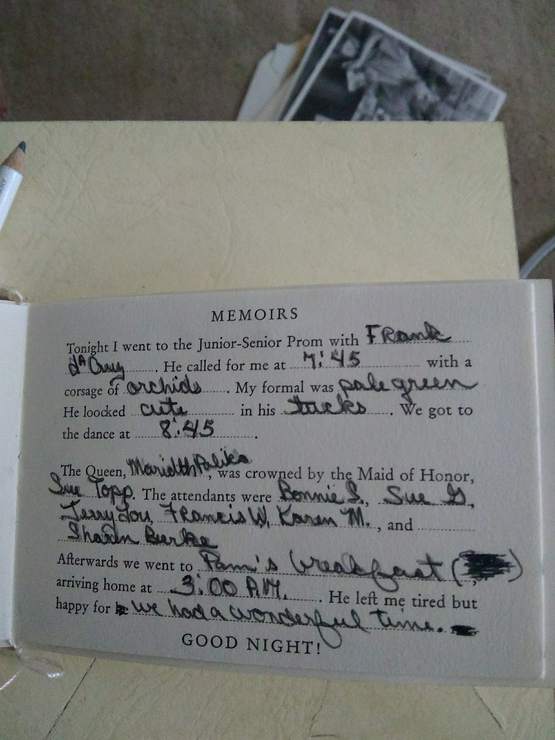 MEMOIRS
Tonight I went to the Junior-Senior Prom with FRank
. He called for me at 7:45 with a
corsage of orchids. My formal was pale green
He loocked cute in his tucks. We got to
the dance at 8:45.
The Queen, , was crowned by the Maid of Honor,
Sue Topp. The attendants were Bonnie S., Sue G.,
Jerry Lou, FRancis W, Karen M., and
Sharon Burke
Afterwards we went to Pam's breakfast ( )
arriving home at 3:00 A.M. He left me tired but
happy for we had a wonderful time.
GOOD NIGHT!